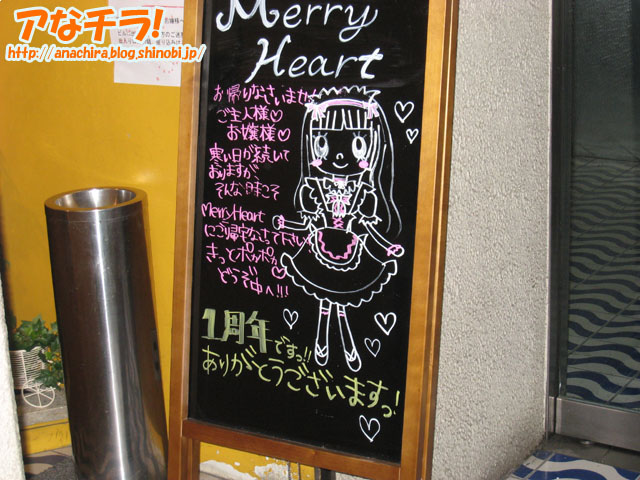 アなチラ!
http://anachira.blog.shinobi.jp/
Merry
Heart
お帰りなさいませ
ご主人様♡
お嬢様♡
寒い日が続いて
おりますが
そんな時こそ
MerryHeart
にご帰宅なさって下さい
きっとポカポカ
どうぞ中へ!!!
1周年ですっ!!
ありがとうございますっ!